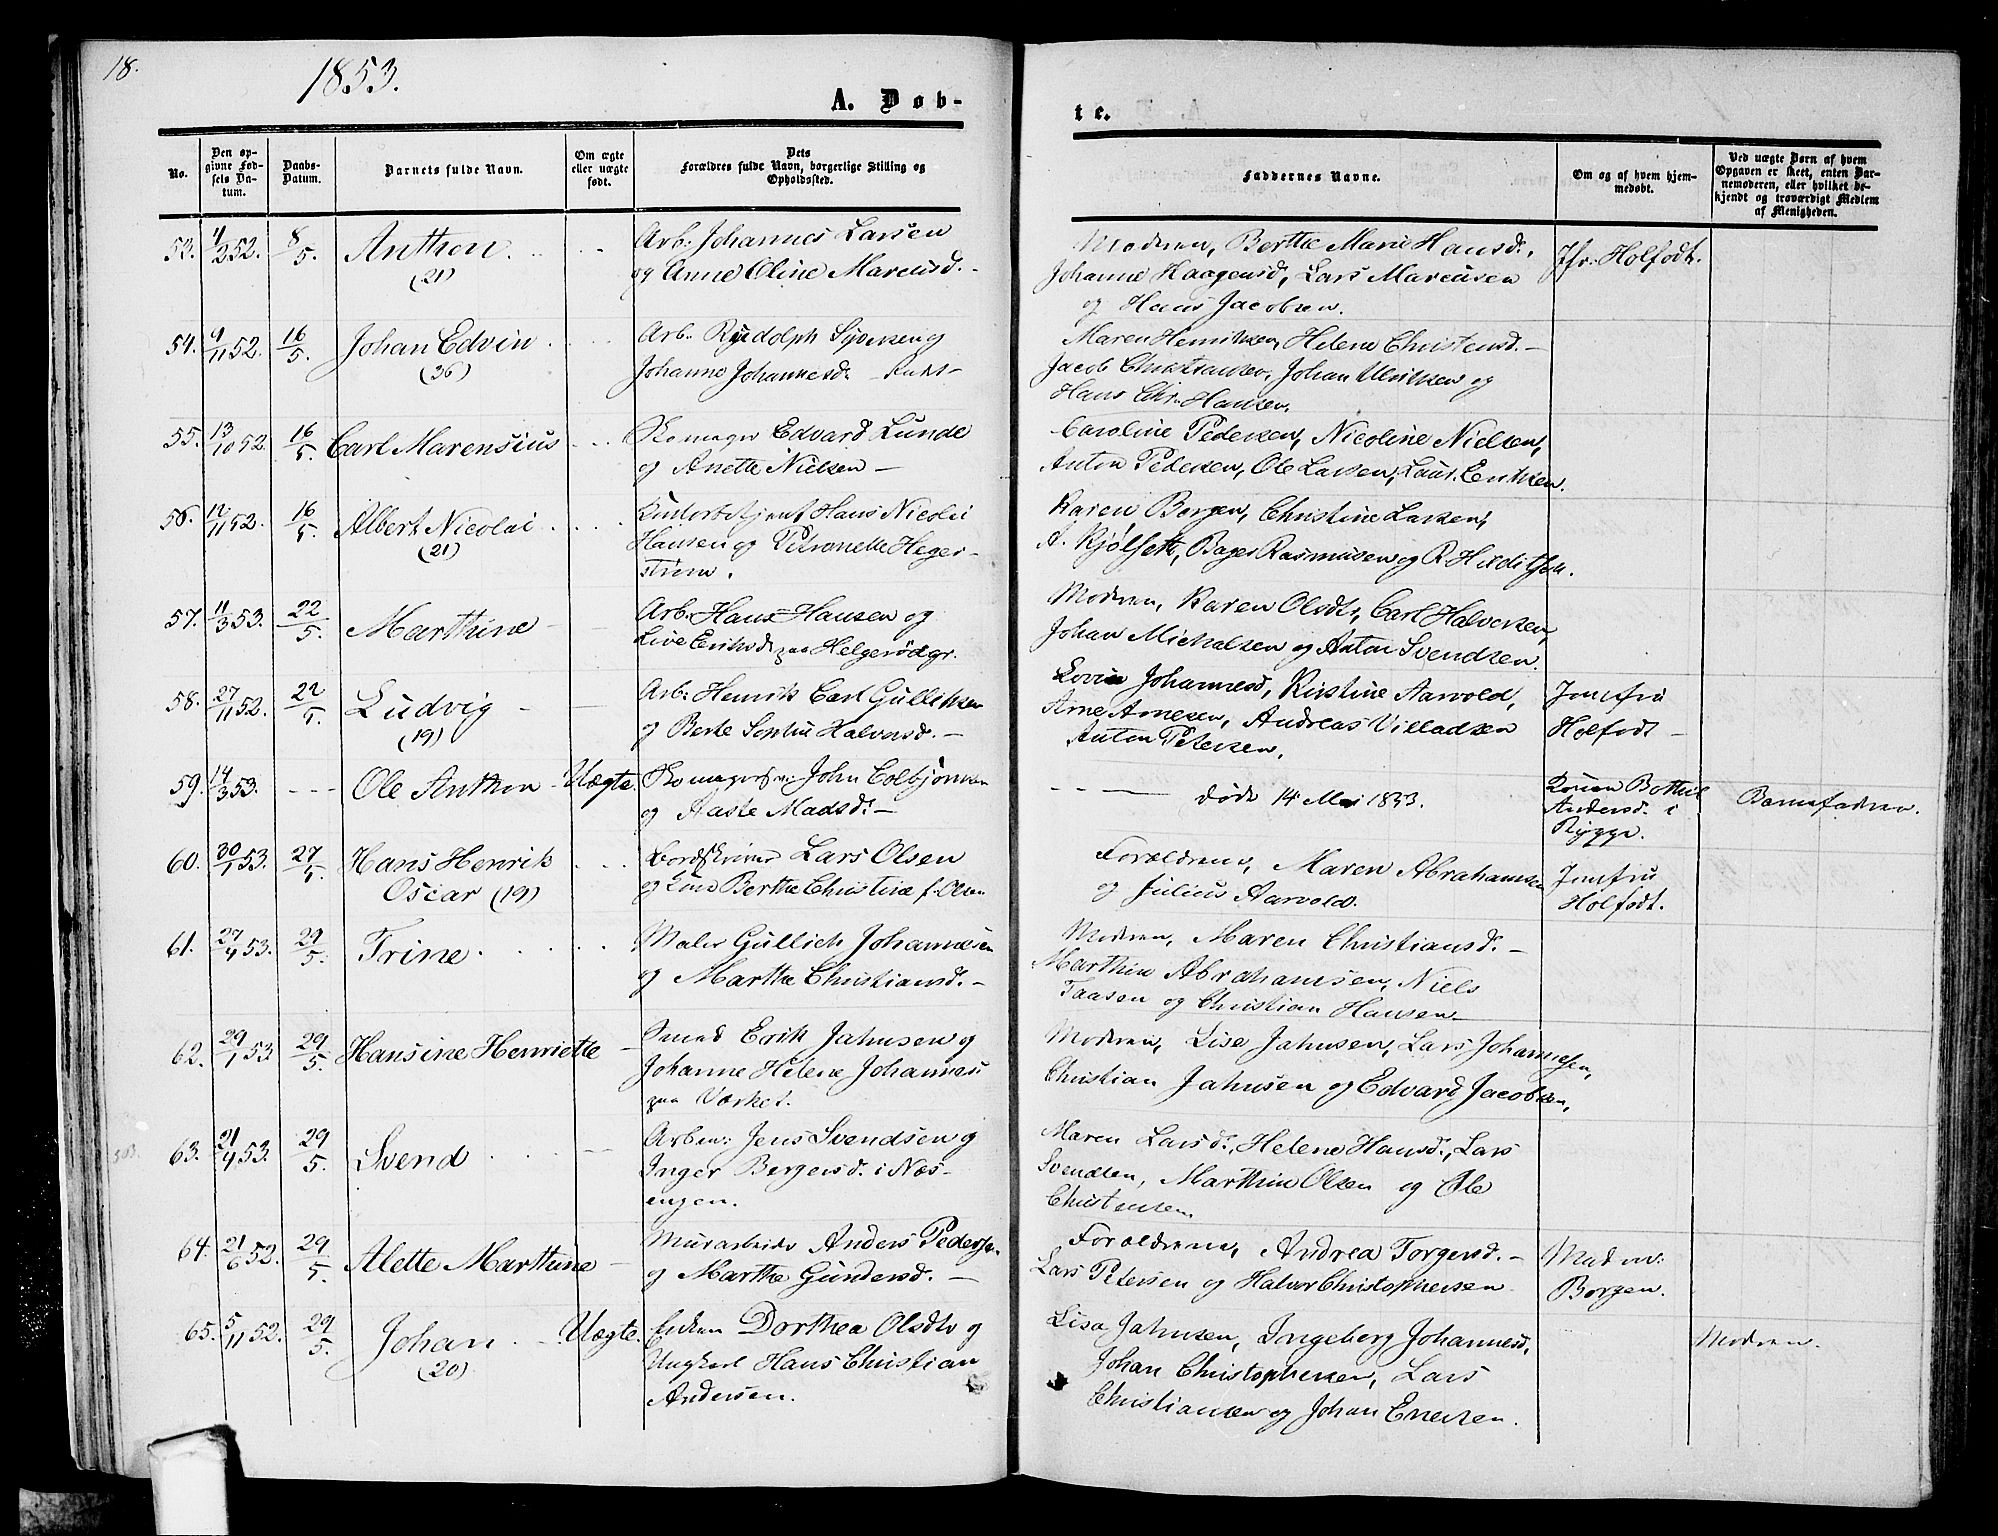 18.
1853.
A. Døb-
te.
No.
Den op-
givne Fød-
sels Da-
tum.
Daabs-
Datum.
Barnets fulde Navn.
Om ægte
eller uægte
født.
Dets
Forældres fulde Navn, borgerlige Stilling og
Opholdssted.
Faddernes Navne.
Om og af hvem hjem-
medøbt.
Ved uægte Børn af hvem
Opgaven er skeet, enten Bar-
nemoderen, eller hvilket be-
kjendt og troværdigt Medlem
af Menigheden.
53. 4/2 52. 8/5. Anthon (21)
Arb: Johannes Larsen
og Anne Oline Marcusd. -
Modren, Berthe Marie Hansd.,
Johanne Haagensd, Lars Marcusen
og Hans Jacobsen.
Jfr. Holfodt.
54. 9/11 52. 16/5. Johan Edvin (36)
Arb. Rudolph Syversen og
Johanne Johannesd.
Maren Henriksen, Helene Christensd. -
Jacob Christiansen, Johan Ulriksen og
Hans Chr. Hansen.
55. 13/10 52. 16/5. Carl Marensius
Skomager Edvard Lunde
og Anette Nielsen -
Caroline Pedersen, Nicoline Nielsen,
Anton Pedersen, Ole Larsen, Laur. Eriksen.
56. 12/11 52. 16/5. Albert Nicolai (21)
Hans Nicolai
Hansen og Petronelle Heger-
strøm.
Karen Borgen, Christine Larsen,
A. Kjølseth, Bager Rasmusen og R. Hilditsch.
57. 11/3 53. 22/5. Marthine -
Arb. Hans Hansen og
Live Eriksdt paa Helgerødgr.
Modren, Karen Olsdtr, Carl Halvorsen,
Johan Michalsen og Anton Svendsen.
58. 27/11 52. 22/5. Ludvig - (19)
Arb. Henrik Carl Gulliksen
og Berte Sophie Halvorsd. -
Lovise Johannesd, Kirstine Aarvold,
Arne Arnesen, Andreas Villadsen
Anton Petersen.
Jomfru
Holfodt -
59. 14/3 53. --- Ole Anthon - Uægte.
John Colbjørnsen
og Aaste Madsd. -
døde 14 Mai 1853.
Konen Bothil
Andersd. i
Rygge.
Barnefadren.
60. 30/1 53. 27/5. Hans Henrik
Oscar (19)
Bordskriver Lars Olsen
og Berthe Christine f. Olsen
Forældrene, Maren Abrahamsen
og Julius Aarvold.
Jomfru
Holfodt.
61. 27/4 53. 29/5. Trine
Maler Gullich Johannesen
og Marthe Christiansd. -
Modren, Maren Christiansd. -
Marthin Abrahamsen, Niels
Taasen og Christian Hansen -
62. 29/1 53. 29/5. Hansine Henriette
Smed Erik Jahnsen og
Johanne Helene Johannesd
paa Værket.
Modren, Lise Jahnsen, Lars Johannesen,
Christian Jahnsen og Edvard Jacobsen,
63. 21/4 53. 29/5. Svend
Arbm: Jens Svendsen og
Inger Bergersd. i Næs-
engen.
Maren Larsd., Helene Hansd., Lars
Svendsen, Marthin Olsen og Ole
Christensen.
64. 21/6 52. 29/5. Alette Marthine -
Murarbeider Anders Pedersen
og Marthe Gundersd. -
Forældrene, Andrea Torgersd. -
Lars Petersen og Halvor Christophersen
Madm:
Borgen.
65. 5/11 52. 29/5. Johan (20) - Uægte.
Enken Dorthea Olsdtr og
Ungkarl Hans Christian
Andersen.
Lisa Jahnsen, Ingeborg Johannesd,
Johan Christophersen, Lars
Christiansen og Johan Enersen.
Modren.